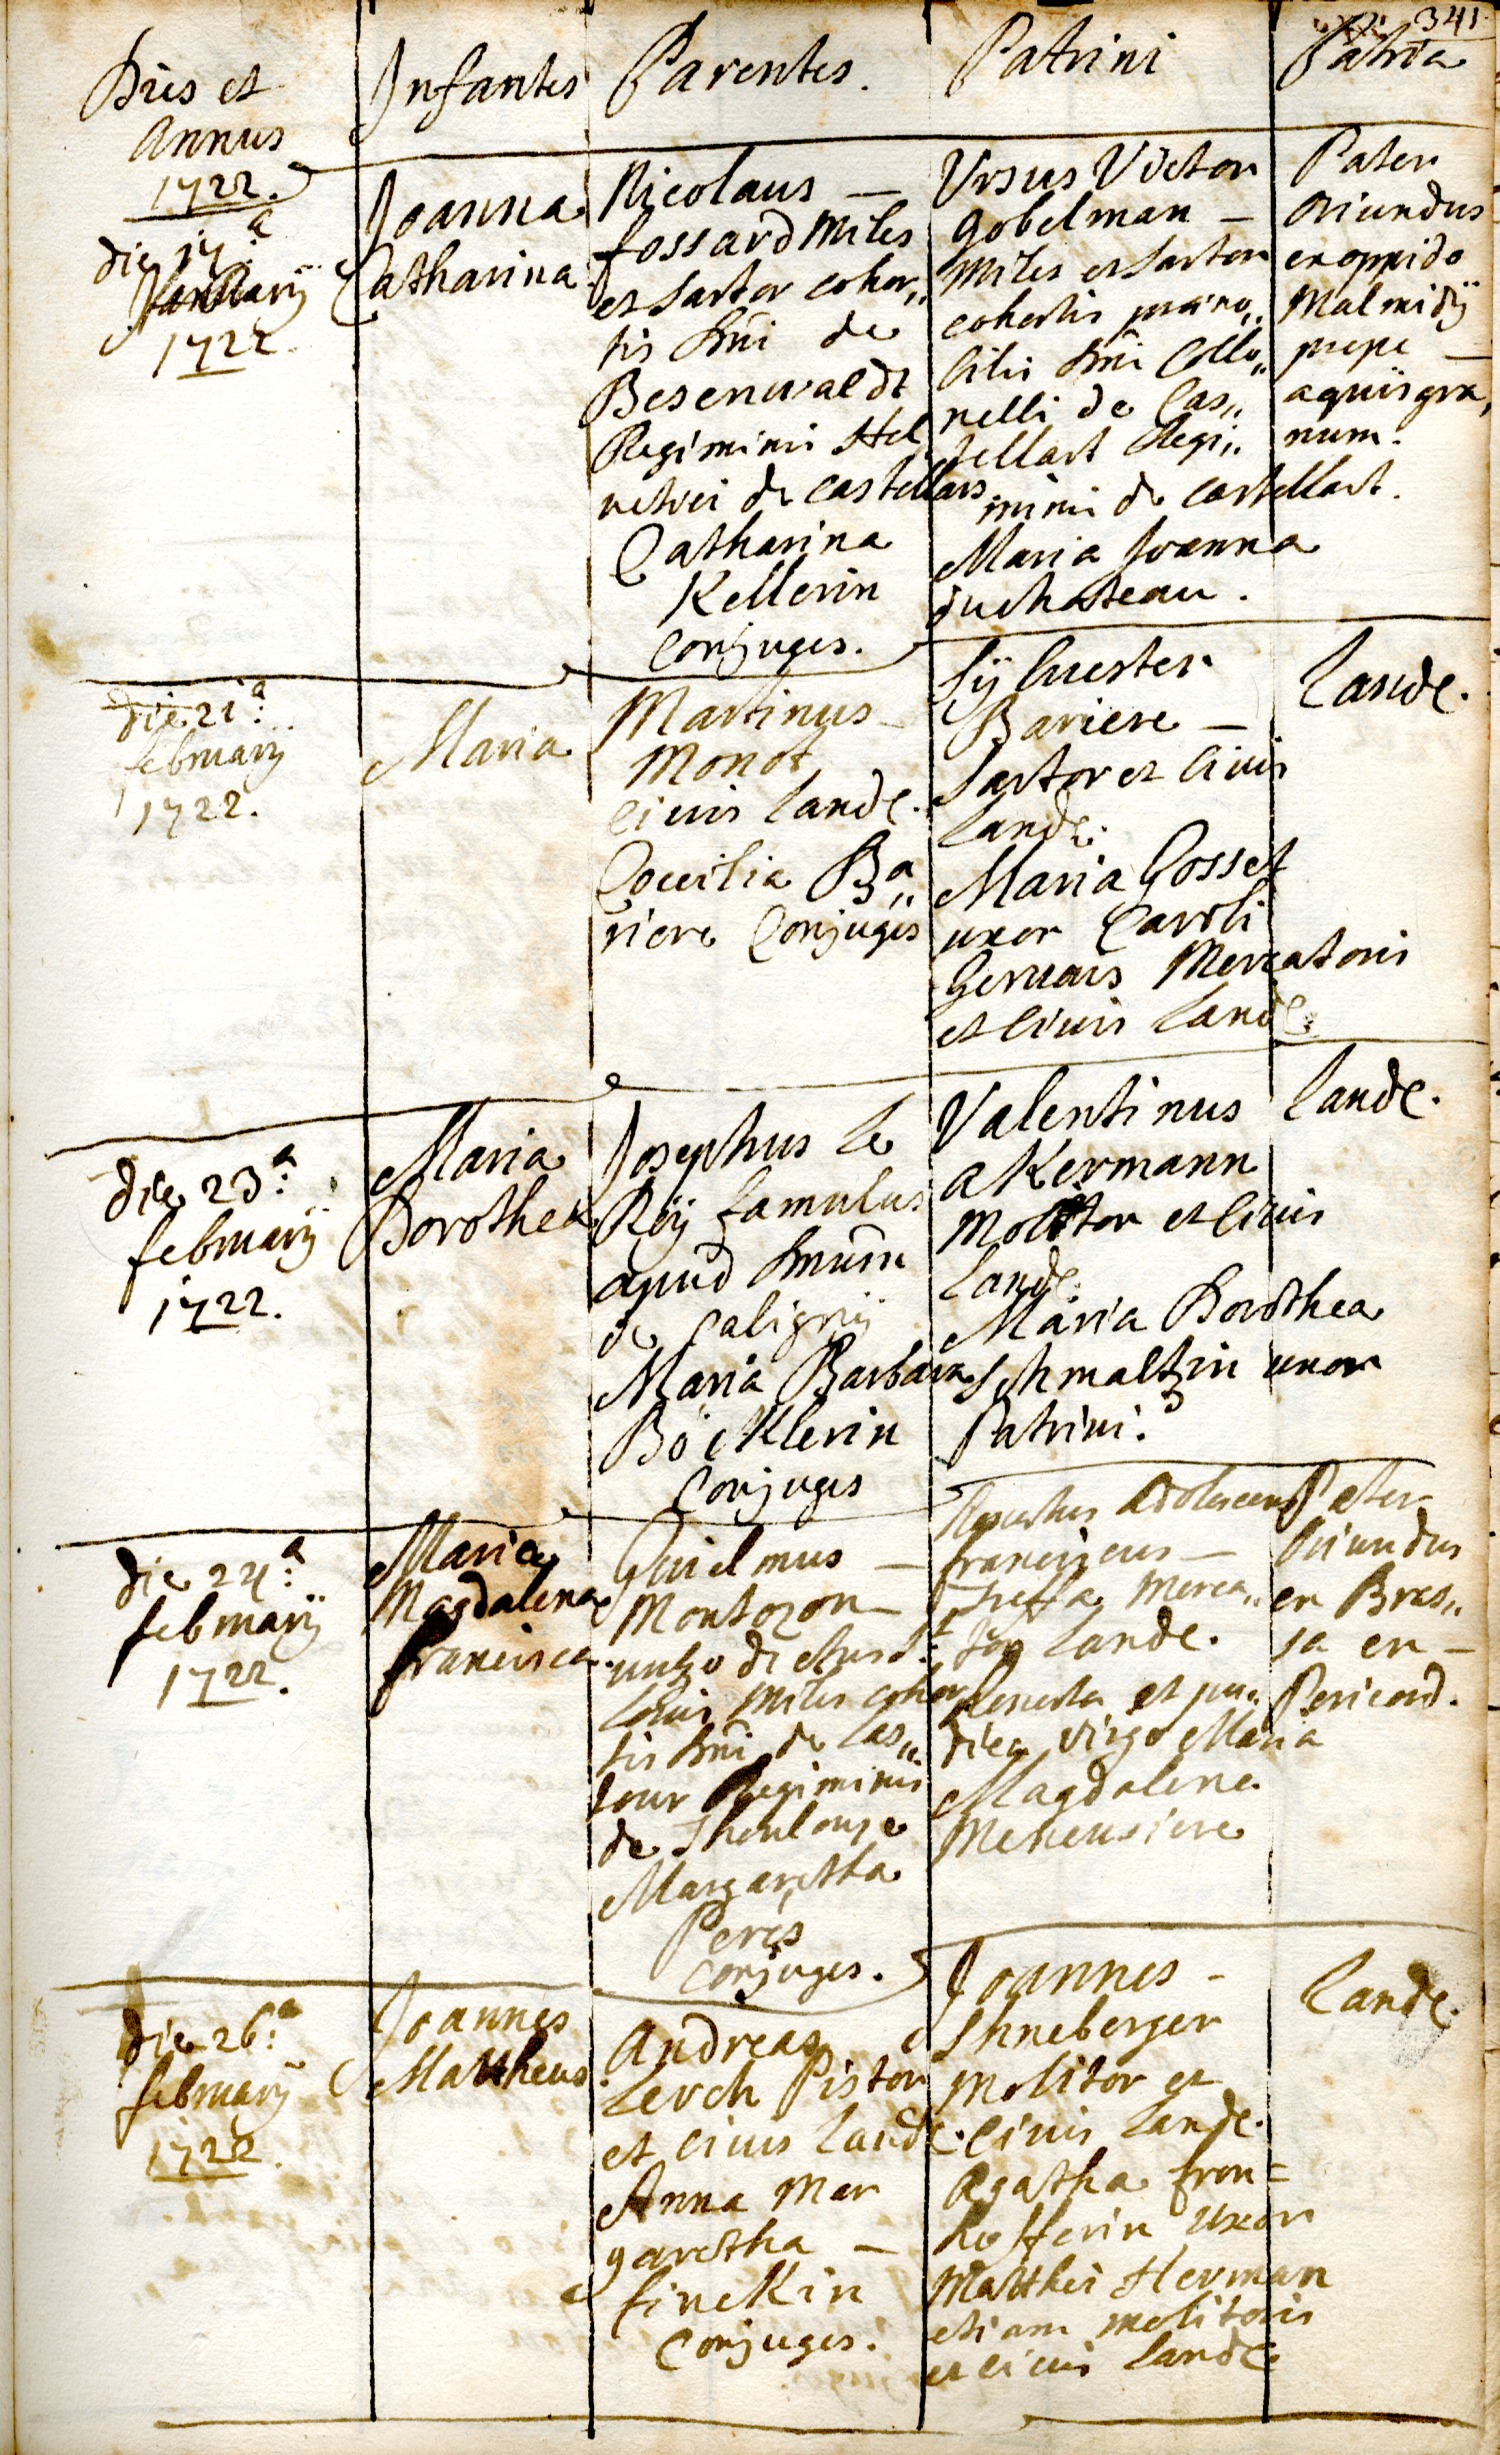 341.
Dies et
Annus
1722.
Infantes
Parentes.
Patrini
Patria
die 17.a
January
1722.
Joanna
Catharina
Nicolaus —
fossard Miles
et Sartor cohor„
tis Dni de
Besenwaldt
Regiminis Hel
vetici de castellars
Catharina
Kellerin
Conjuges.
Ursus Victor
Gobelman —
Miles et Sartor
cohortis prae no„
bilis Dni Collo„
nelli de Cas„
tellart Regi„
minis de castellart.
Maria Joanna
duchateau.
Pater
oriundus
ex oppido
Malmidÿ
prope —
aquisgra,
num.
die 21.a
februarÿ
1722.
Maria
Martinus
Monot
civis Landc.
Coecilia Ba„
riere Conjuges
Sÿlvester
Bariere —
Sartor et Civis
Landc.
Maria Gosset
uxor Caroli
Gervais Mercatoris
et Civis Landc.
Landc.
die 23.a
februarÿ
1722.
Maria
Dorothea
Josephus Le
Roÿ famulus
apud Dnum
de Calignÿ
Maria Barbara
Böcklerin
Conjuges
Valentinus
akermann
Molitor et Civis
Landc.
Maria Dorothea
Schmaltzin uxor
Patrini.
Landc.
die 24.a
februarÿ
1722.
Maria
Magdalena
francisca.
Guielmus —
Montozon
vulgo dictus St.
Louis Miles cohor
tis Dni de Las„
tour Regiminis
de Thoulouze
Margaretha
Peres
conjuges.
Honestus Adolescens
franciscus —
Treffa Merca„
tor Landc.
Honesta et pu„
dica virgo Maria
Magdalena
Meneusiere
Pater
Oriundus
ex Bras„
sa en —
Pericord.
die 26.a
februarÿ
1722.
Joannes
Mattheus
Andreas
Lerch Pistor
et civis Landc.
Anna Mar
garetha —
finckin
Conjuges.
Joannes —
Shneberger
Molitor et
Civis Landc.
Agatha fron=
hofferin uxor
Matthei Herman
etiam molitoris
et civis Landc.
Landc.